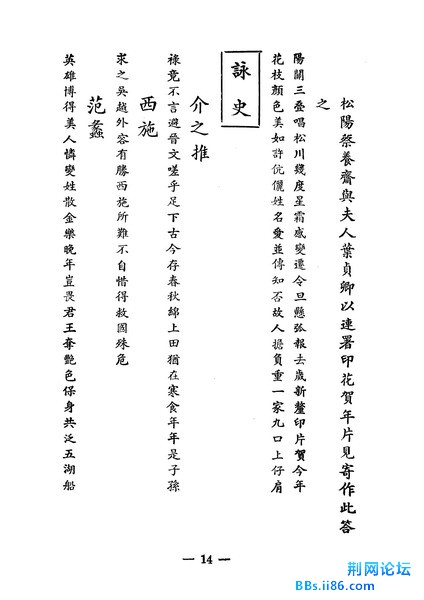 松陽蔡養齋與夫人葉貞卿以連署印花賀年片見寄作此答
之
陽關三疊唱松川幾度星霜感變遷令旦懸弧報去歲新釐印片賀今年
花枝顏色美如許伉儷姓名愛並傳知否故人擔負重一家九口上仔肩
詠史
介之推
祿竟不言避晉文嗟乎足下古今存春秋綿上田猶在寒食年年是子孫
西施
求之吳越外容有勝西施所難不自惜得救國殊危
范蠡
英雄博得美人憐變姓散金樂晚年豈畏君王奪艷色保身共泛五湖船
— 14 —
荆网论坛
BBs.ii86.com